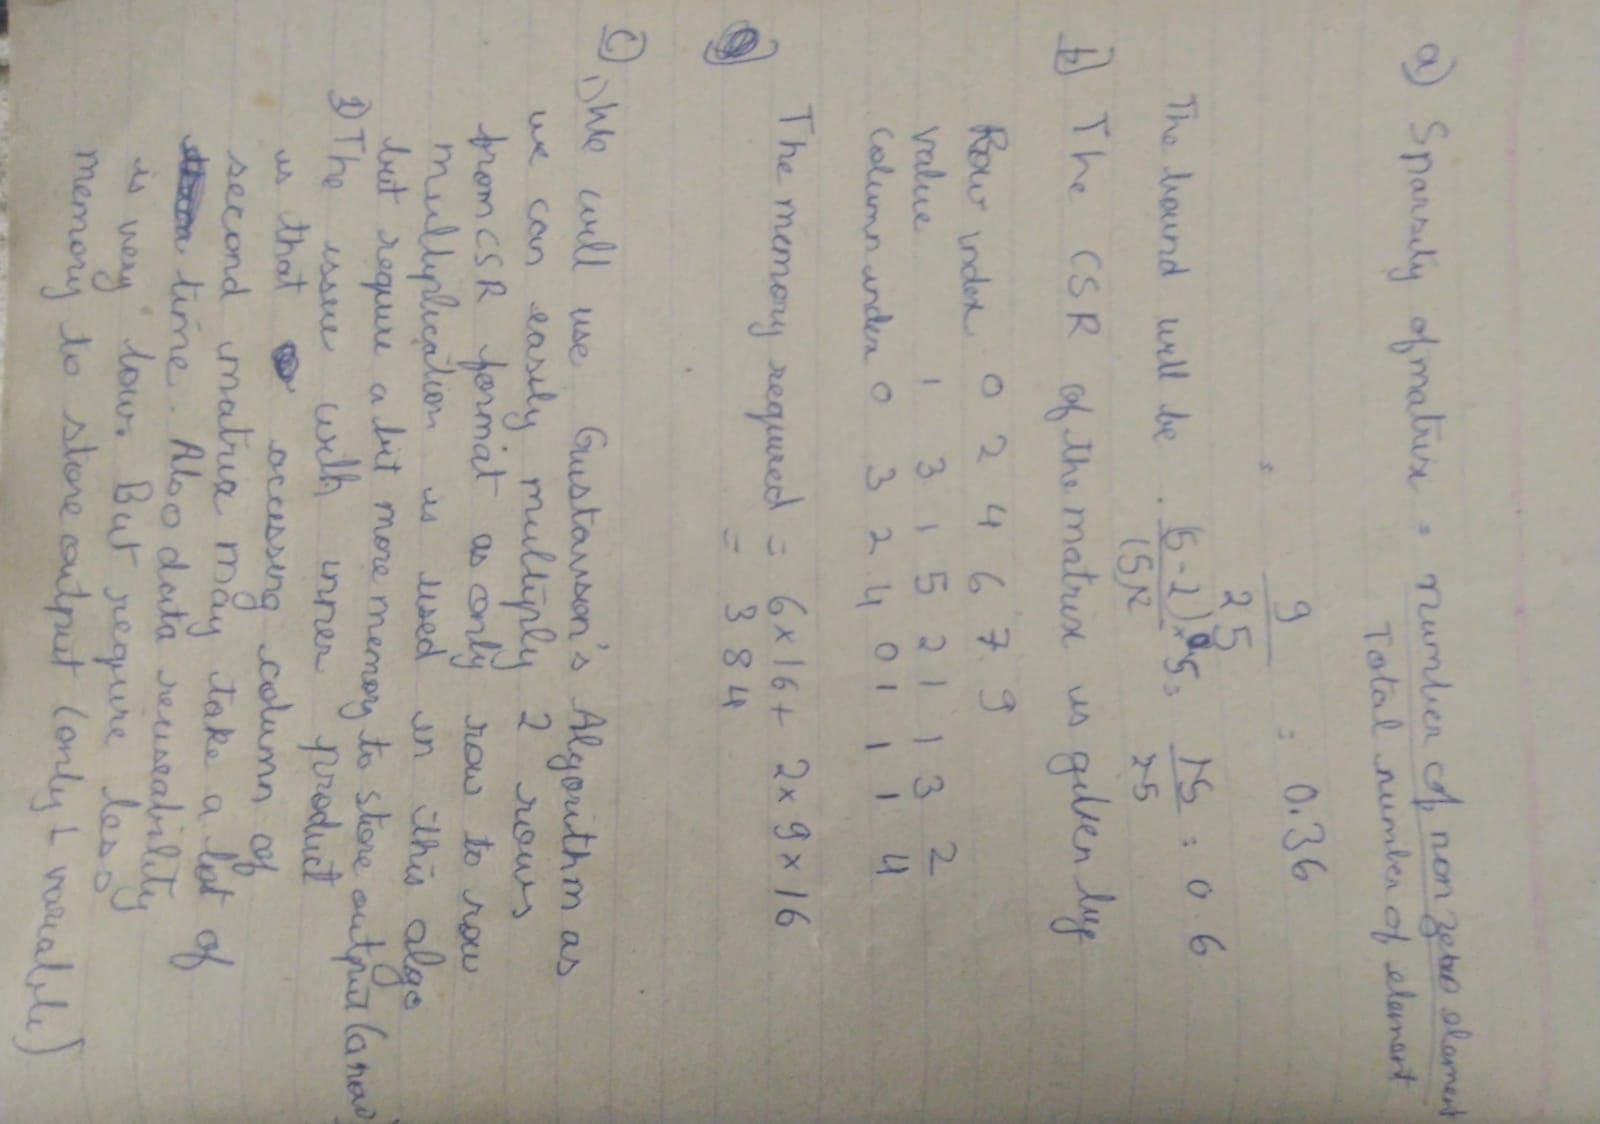 a) Sparsity of matrix = number of non zero element
Total number of element
= 9
25
= 0.36
The bound will be (5-2)×5 = 15 = 0.6
(5)2 25
b) The CSR of the matrix is given by
Row index 0 2 4 6 7 9
Value 1 3 1 5 2 1 1 3 2
Column index 0 3 2 4 0 1 1 1 4
The memory required = 6×16 + 2×9×16
= 384
c) 1) We will use Gustavson's Algorithm as
we can easily multiply 2 rows
from CSR format as only row to row
multiplication is used in this algo
but require a bit more memory to store output (a row)
The issue with inner product
is that accessing column of
second matrix may take a lot of
time. Also data reuseability
is very low. But require less
memory to store output (only 1 variable)